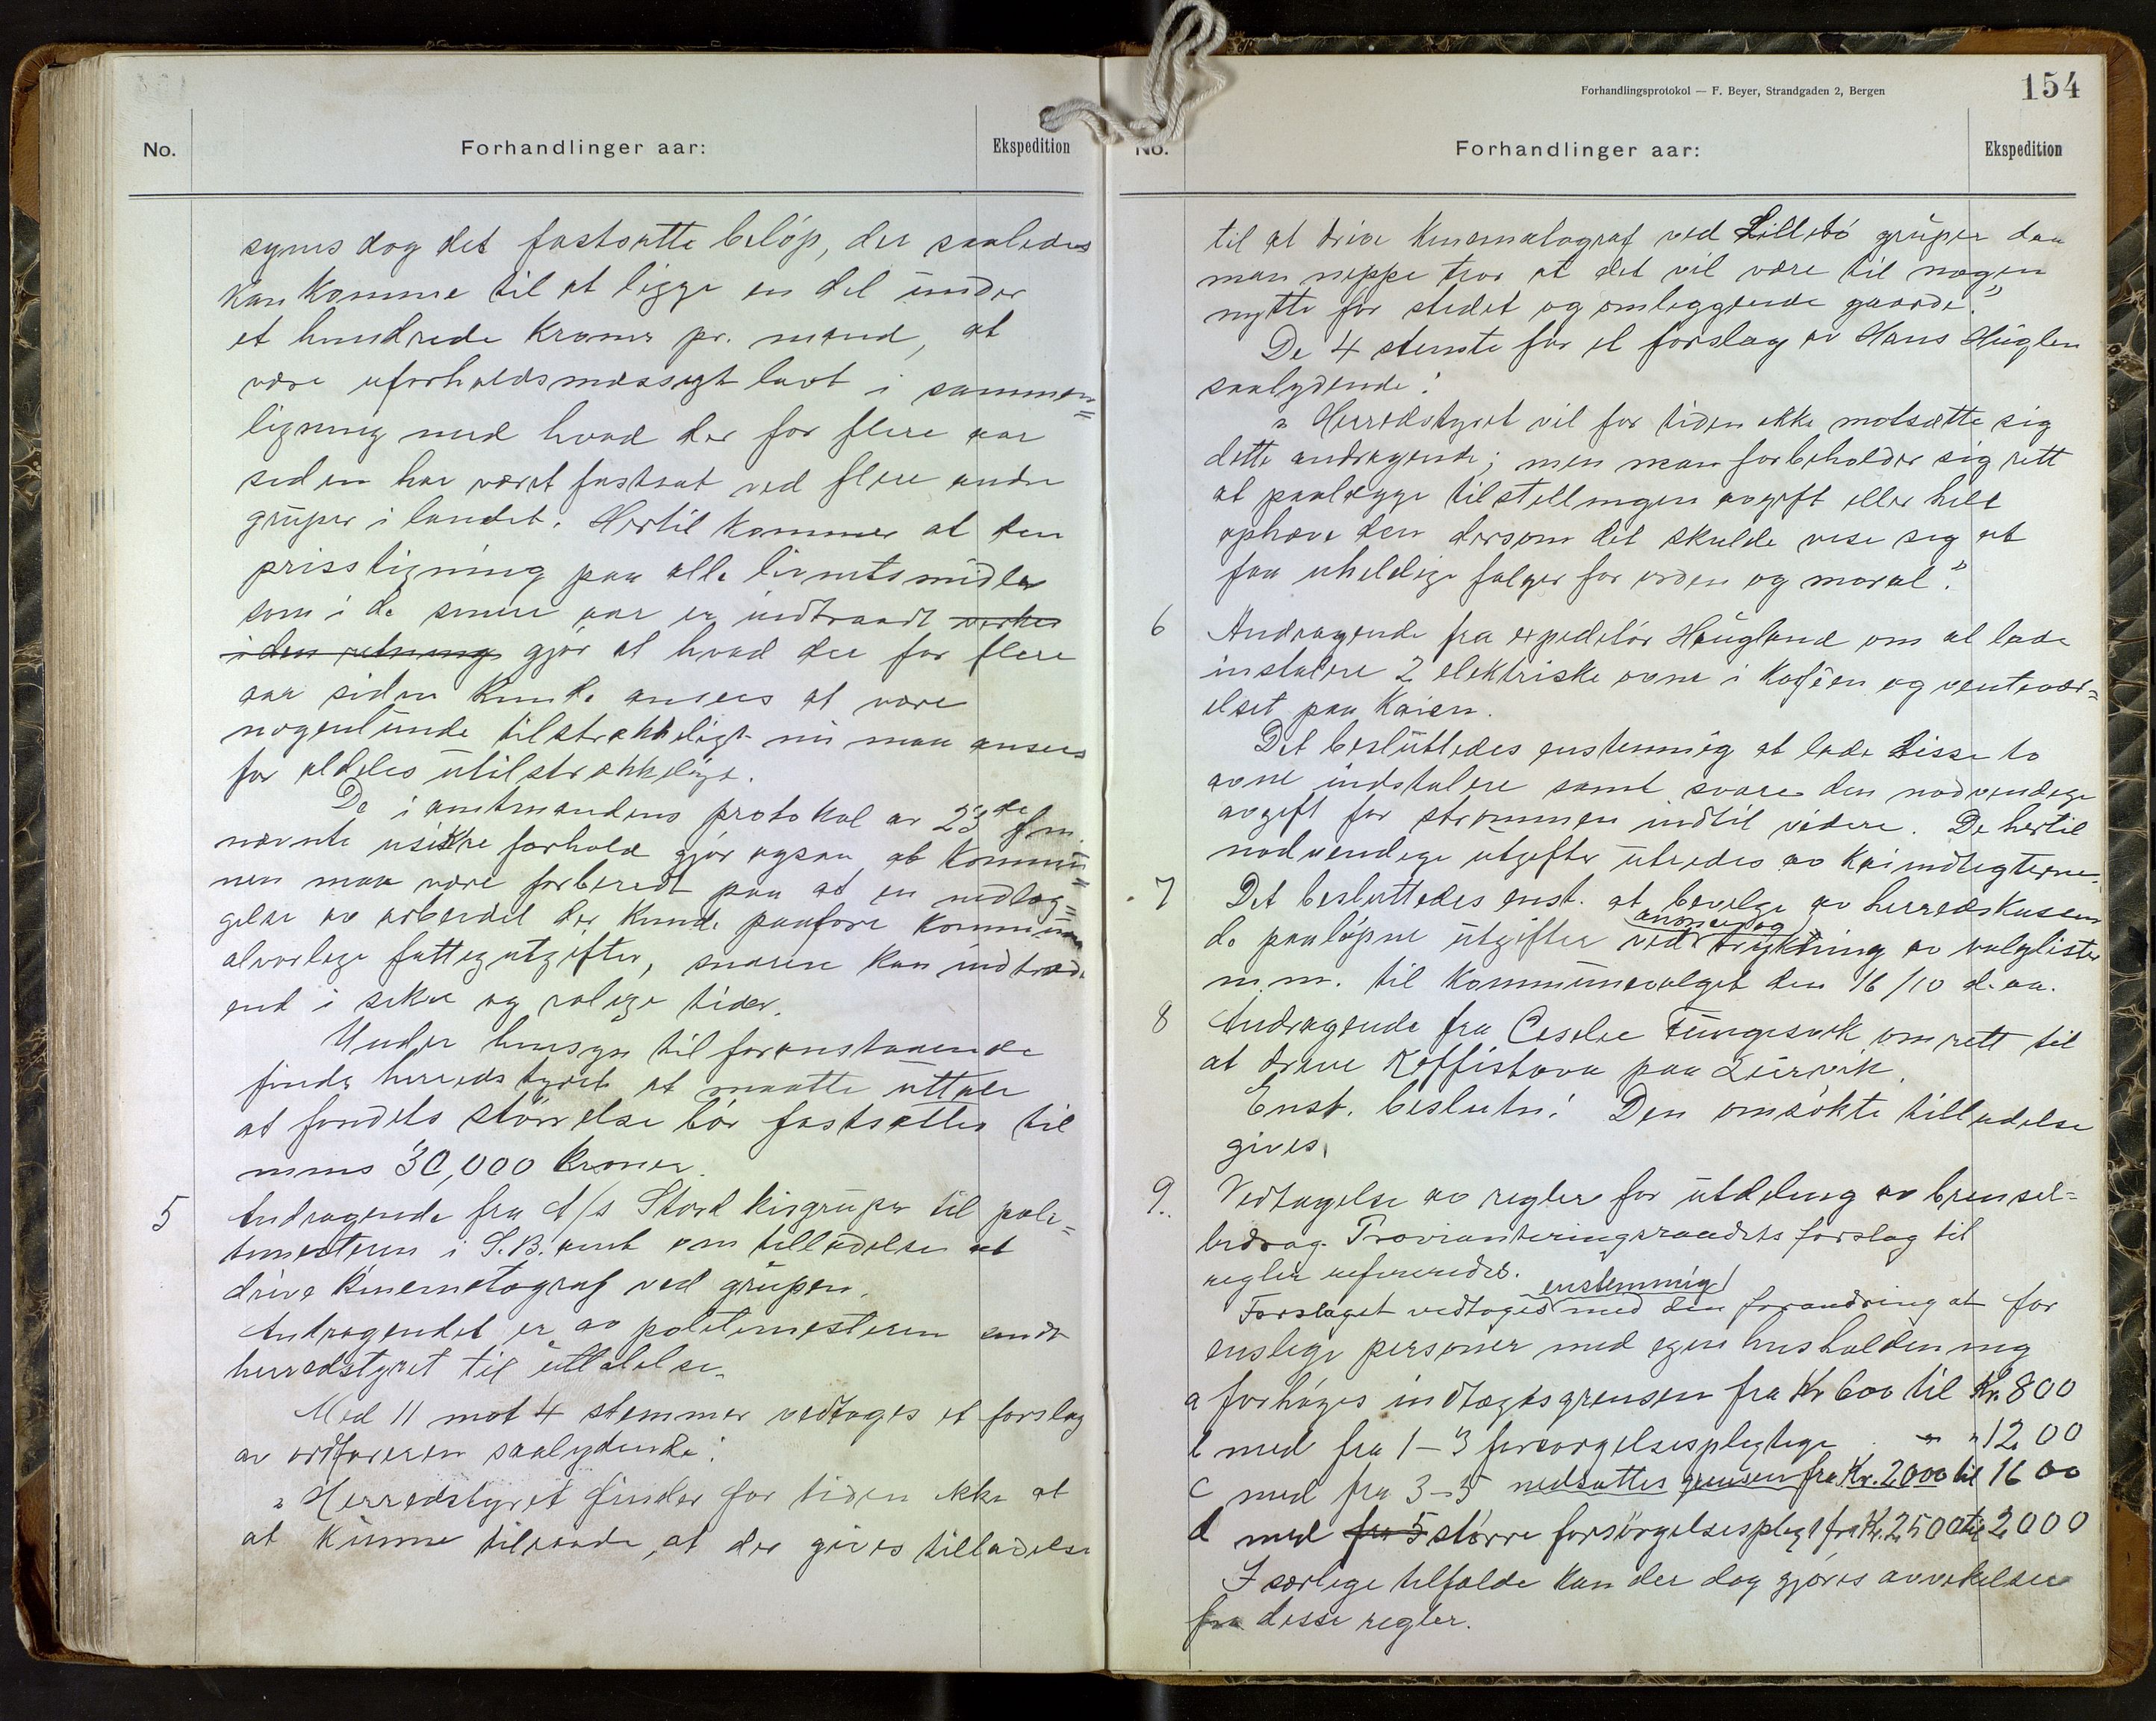 No.
Forhandlinger aar:
Ekspedition
synes dog det fastsatte beløp, der saaledes
kan komme til at ligge en del under
et hundrede kroner pr. mand, at
være uforholdsmæssigt lavt i sammen=
ligning med hvad der for flere aar
siden har været fastsat ved flere andre
gruper i landet. Hertil kommer at den
prisstigning paa alle livnetsmidler
som i de senere aar er indtraadt virker
i den retning gjør at hvad der for flere
aar siden kunde ansees at være
nogenlunde tilstrækkeligt nu maa ansees
for aldeles utilstrækkeligt.
De i amtmandens protokol av 23de f.m.
nævnte usikre forhold gjør ogsaa at kommu=
nen maa være forberedt paa at en nedlæg=
gelse av arbeidet der kunde paaføre kommunen
alvorlige fattigutgifter, snarere kan indtræde
end i sikre og rolige tider.
Under hensyn til foranstaaende
finder herredstyret at maatte uttale
at fondets størrelse bør fastsættes til
minst 30,000 kroner.
5 Andragende fra A/s Stord kisgruper til poli=
timesteren i S.B. amt om tilladelse at
drive kinematograf ved grupen.
Andragendet er av politimesteren sendt
herredstyret til uttalelse.
Med 11 mot 4 stemmer vedtoges et forslag
av ordføreren saalydende:
"Herredstyret finder for tiden ikke at
at kunne tilraade, at der gives tilladelse
Forhandlingsprotokol — F. Beyer, Strandgaden 2, Bergen
154
No.
Forhandlinger aar:
Ekspedition
til at drive kinematograf ved Lillebø gruper daa
man neppe tror at det vil være til nogen
nytte for stedet og omliggende gaarde."
De 4 stemte for et forslag av Hans Huglen
saalydende:
"Herredstyret vil for tiden ikke motsætte sig
dette andragende; men man forbeholder sig rett
at paalægge tilstellingen avgift eller helt
ophæve den dersom det skulde vise sig at
faa uheldige følger for orden og moral".
6 Andragende fra expeditør Haugland om at lade
instalere 2 elektriske ovne i Kaféen og ventevær=
elset paa Kaien.
Det besluttedes enstemmig at lade disse to
ovne indstalere samt svare den nødvendige
avgift for strømmen indtil videre. De hertil
nødvendige utgifter utredes av kaiindtegterne.
7 Det besluttedes enst. at bevilge av herredskassen
de paaløpne utgifter ved annonser og trykning av valglister
m.m. til kommunevalget den 16/10 d.aa.
8 Andragende fra Ceselie Tungesvik om rett til
at drive Kaffistova paa Leirvik.
Enst. beslutn: Den omsøkte tilladelse
gives.
9. Vedtagelse av regler for utdeling av brensel=
bidrag. Provianteringsraadets forslag til
regler refereredes.
Forslaget vedtoges enstemmig med den forandring at for
enslige personer med egen husholdening
a forhøges indtægtsgrensen fra Kr 600 til Kr. 800
b med fra 1–3 forsørgelsespligtige " " 1200
c med fra 3–5 nedsættes grensen fra Kr. 2000 til 1600
d med fra 5 større forsørgelsesplegt fra Kr. 2500 til 2000
I særlige tilfælde kan der dog gjøres avvikelser
fra desse regler.